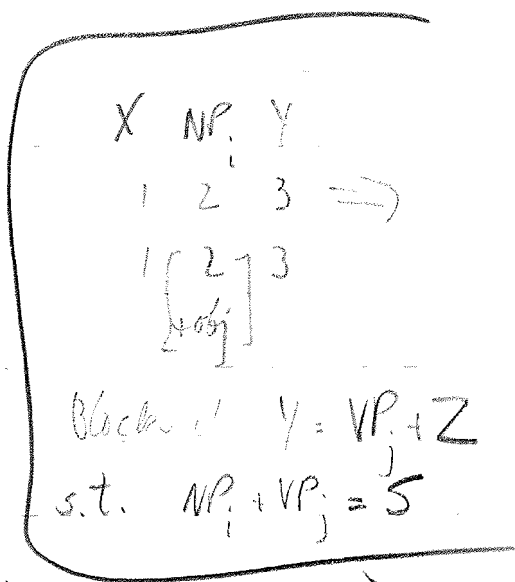 X NPᵢ Y
1 2 3 ⇒
1 [ 2 ] 3
+obj
Block if Y = VPⱼ + Z
s.t. NPᵢ + VPⱼ = S